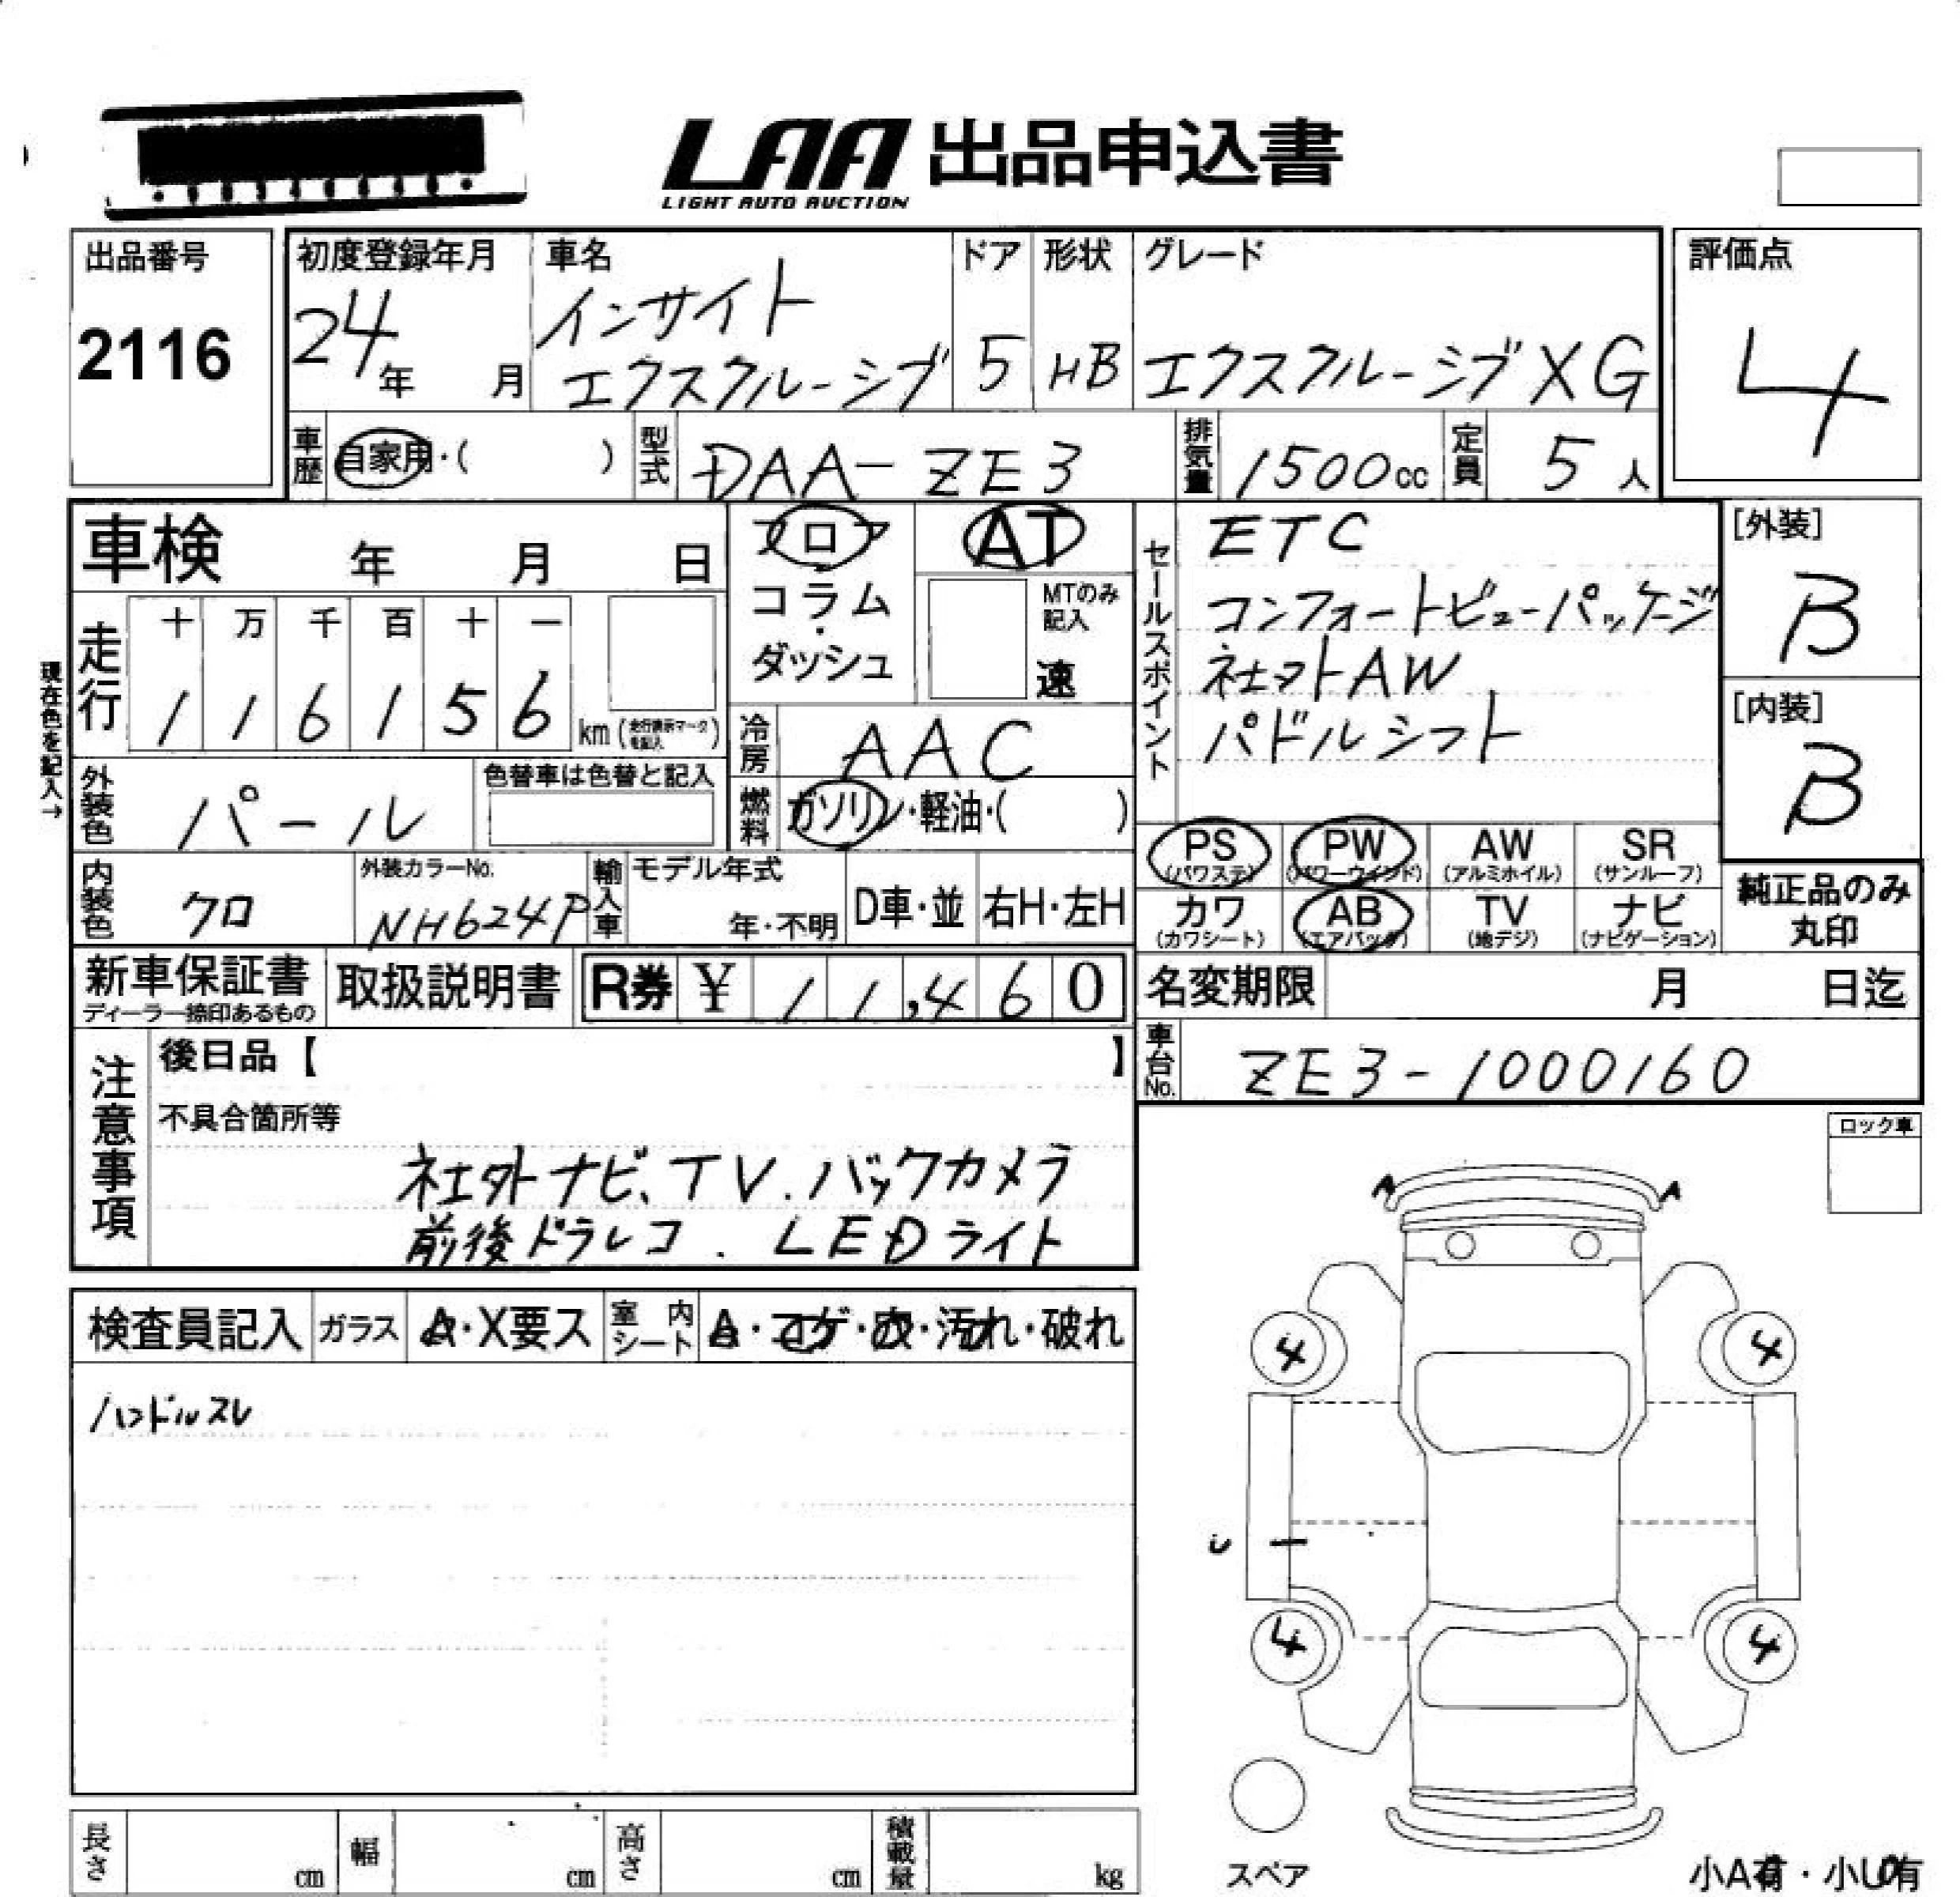 LAA 出品申込書
LIGHT AUTO AUCTION
出品番号
2116
初度登録年月
24年 月
車名
インサイト
エクスクルーシブ
ドア
5
形状
HB
グレード
エクスクルーシブXG
評価点
4
車歴 自家用・( )
型式 DAA-ZE3
排気量 1500cc
定員 5人
車検 年 月 日
フロア
コラム
・
ダッシュ
AT
MTのみ
記入
速
セールスポイント
ETC
コンフォートビューパッケージ
社外AW
パドルシフト
[外装]
B
[内装]
B
現在色を記入→
走行
十 万 千 百 十 一
1 1 6 1 5 6 km (走行表示マークを記入)
冷房 AAC
外装色 パール
色替車は色替と記入
燃料 ガソリン・軽油・( )
PS (パワステ) PW (パワーウィンド) AW (アルミホイル) SR (サンルーフ)
カワ (カワシート) AB (エアバッグ) TV (地デジ) ナビ (ナビゲーション)
純正品のみ
丸印
内装色 クロ
外装カラーNo.
NH624P
輸入車
モデル年式
年・不明
D車・並
右H・左H
新車保証書
ディーラー捺印あるもの
取扱説明書
R券 ¥ 11,460
名変期限 月 日迄
車台No. ZE3-1000160
注意事項
後日品【 】
不具合箇所等
社外ナビ、TV.バックカメラ
前後ドラレコ. LEDライト
ロック車
A A
検査員記入 ガラス A・X要ス 室内シート A・コゲ・穴・汚れ・破れ
ハンドルスレ
4 4
U
4 4
スペア
小A有・小U有
長さ cm 幅 cm 高さ cm 積載量 kg